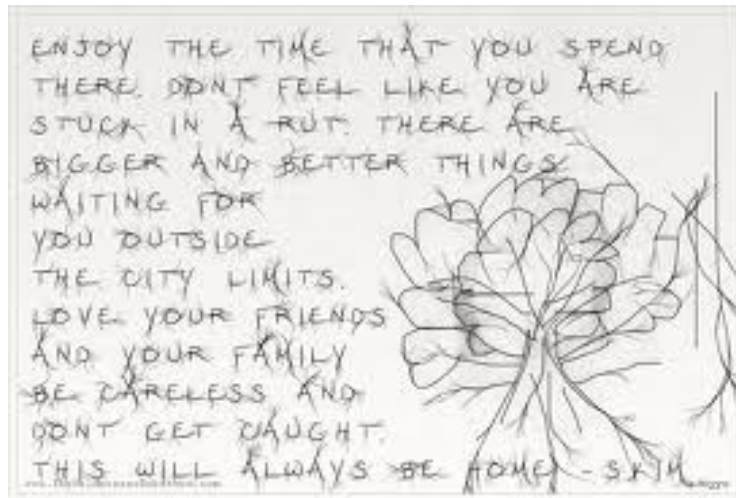 ENJOY THE TIME THAT YOU SPEND
THERE. DONT FEEL LIKE YOU ARE
STUCK IN A RUT. THERE ARE
BIGGER AND BETTER THINGS
WAITING FOR
YOU OUTSIDE
THE CITY LIMITS.
LOVE YOUR FRIENDS
AND YOUR FAMILY
BE CARELESS AND
DONT GET CAUGHT.
THIS WILL ALWAYS BE HOME! - SKIM